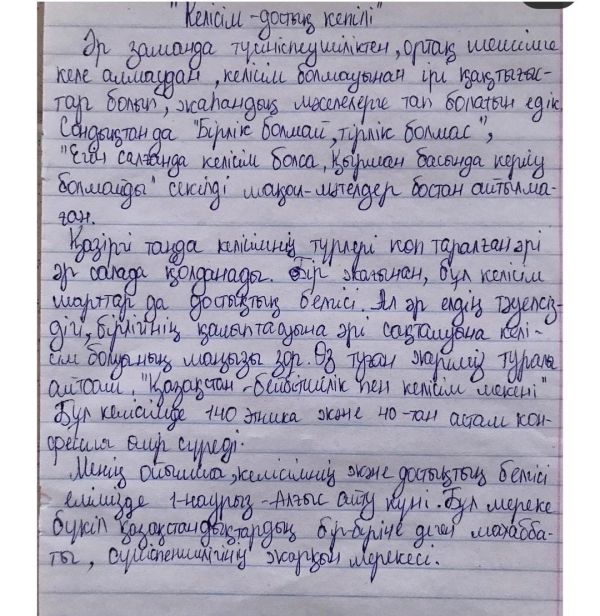 "Келісім - достық кепілі"
Әр заманда түсініспеушіліктен, ортақ шешімге
келе алмаудан, келісім болмауынан ірі қақтығыс-
тар болып, жаһандық мәселелерге тап болатын едік.
Сондықтан да "Бірлік болмай, тірлік болмас",
"Егін салғанда келісім болса, Қырман басында керілу
болмайды" секілді мақал-мәтелдер бостан айтылма-
ған.
Қазіргі таңда келісімнің түрлері көп таралған әрі
әр салада қолданады. Бір жағынан, бұл келісім
шарттар да достықтың белгісі. Ал әр елдің тәуелсіз-
дігі, бірлігінің қалыптасуына әрі сақталуына келі-
сім болуының маңызы зор. Өз туған жеріміз туралы
айтсам, "Қазақстан - бейбітшілік пен келісім мекені"
Бұл келісімде 140 этника және 40-тан астам кон-
фессия өмір сүреді.
Менің ойымша, келісімнің және достықтың белгісі
елімізде 1-наурыз - Алғыс айту күні. Бұл мереке
бүкіл қазақстандықтардың бір-біріне деген махабба-
ты, сүйіспеншілігінің жарқын мерекесі.